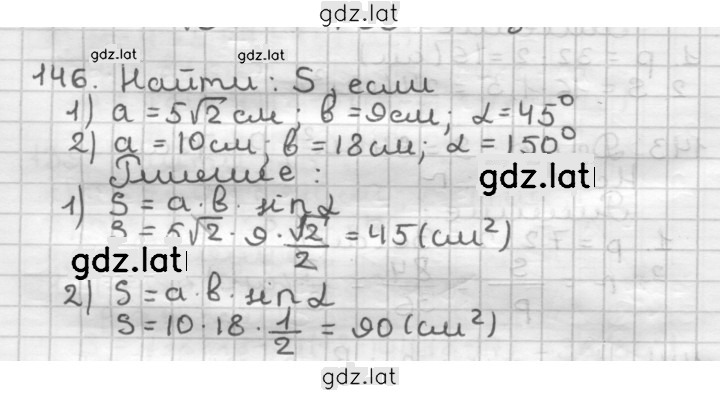 gdz.lat
gdz.lat gdz.lat
146. Найти: S, если
1) a = 5√2 см; b = 9см; α = 45°
2) a = 10см; b = 18см; α = 150°
Решение:
gdz.lat
1) S = a · b · sin α
S = 5√2 · 9 · √2/2 = 45 (см²)
gdz.lat
2) S = a · b · sin α
S = 10 · 18 · 1/2 = 90 (см²)
gdz.lat